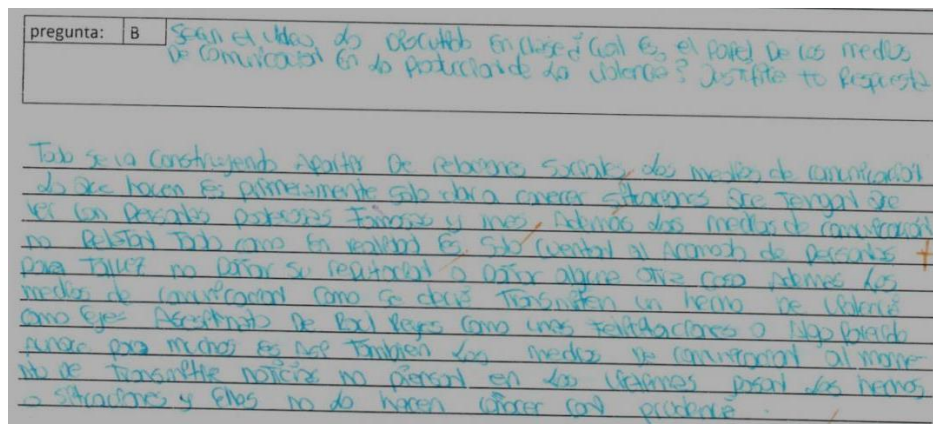 pregunta: B Según el video, lo discutido en clase ¿Cual es, el papel De los medios
De comunicación En la producción de la violencia? Justifite tu Respuesta
Todo se va construyendo Apartir De relaciones sociales, los medios de comunicación
lo que hacen es primeramente solo dar a conocer situaciones Que Tengan Que
ver con Personas poderosas Famosos y mas. Además los medios de comunicación
no Relatan Todo como En realidad Es. Solo cuentan al Acomodo de personas
para Talvez no Dañar su reputación o Dañar alguna otra cosa Ademas Los
medios de comunicación como se decia Transmiten un hecho De violencia
como Ejm Asesinato De Raul Reyes como unas felicitaciones o Algo Parecido
aunque para muchos es Asi Tambien Los medios De comunicación al mome-
nto De Transmitir noticias no piensan en Las Victimas pasan los hechos
o situaciones y Ellos no lo hacen conocer con prudencia.